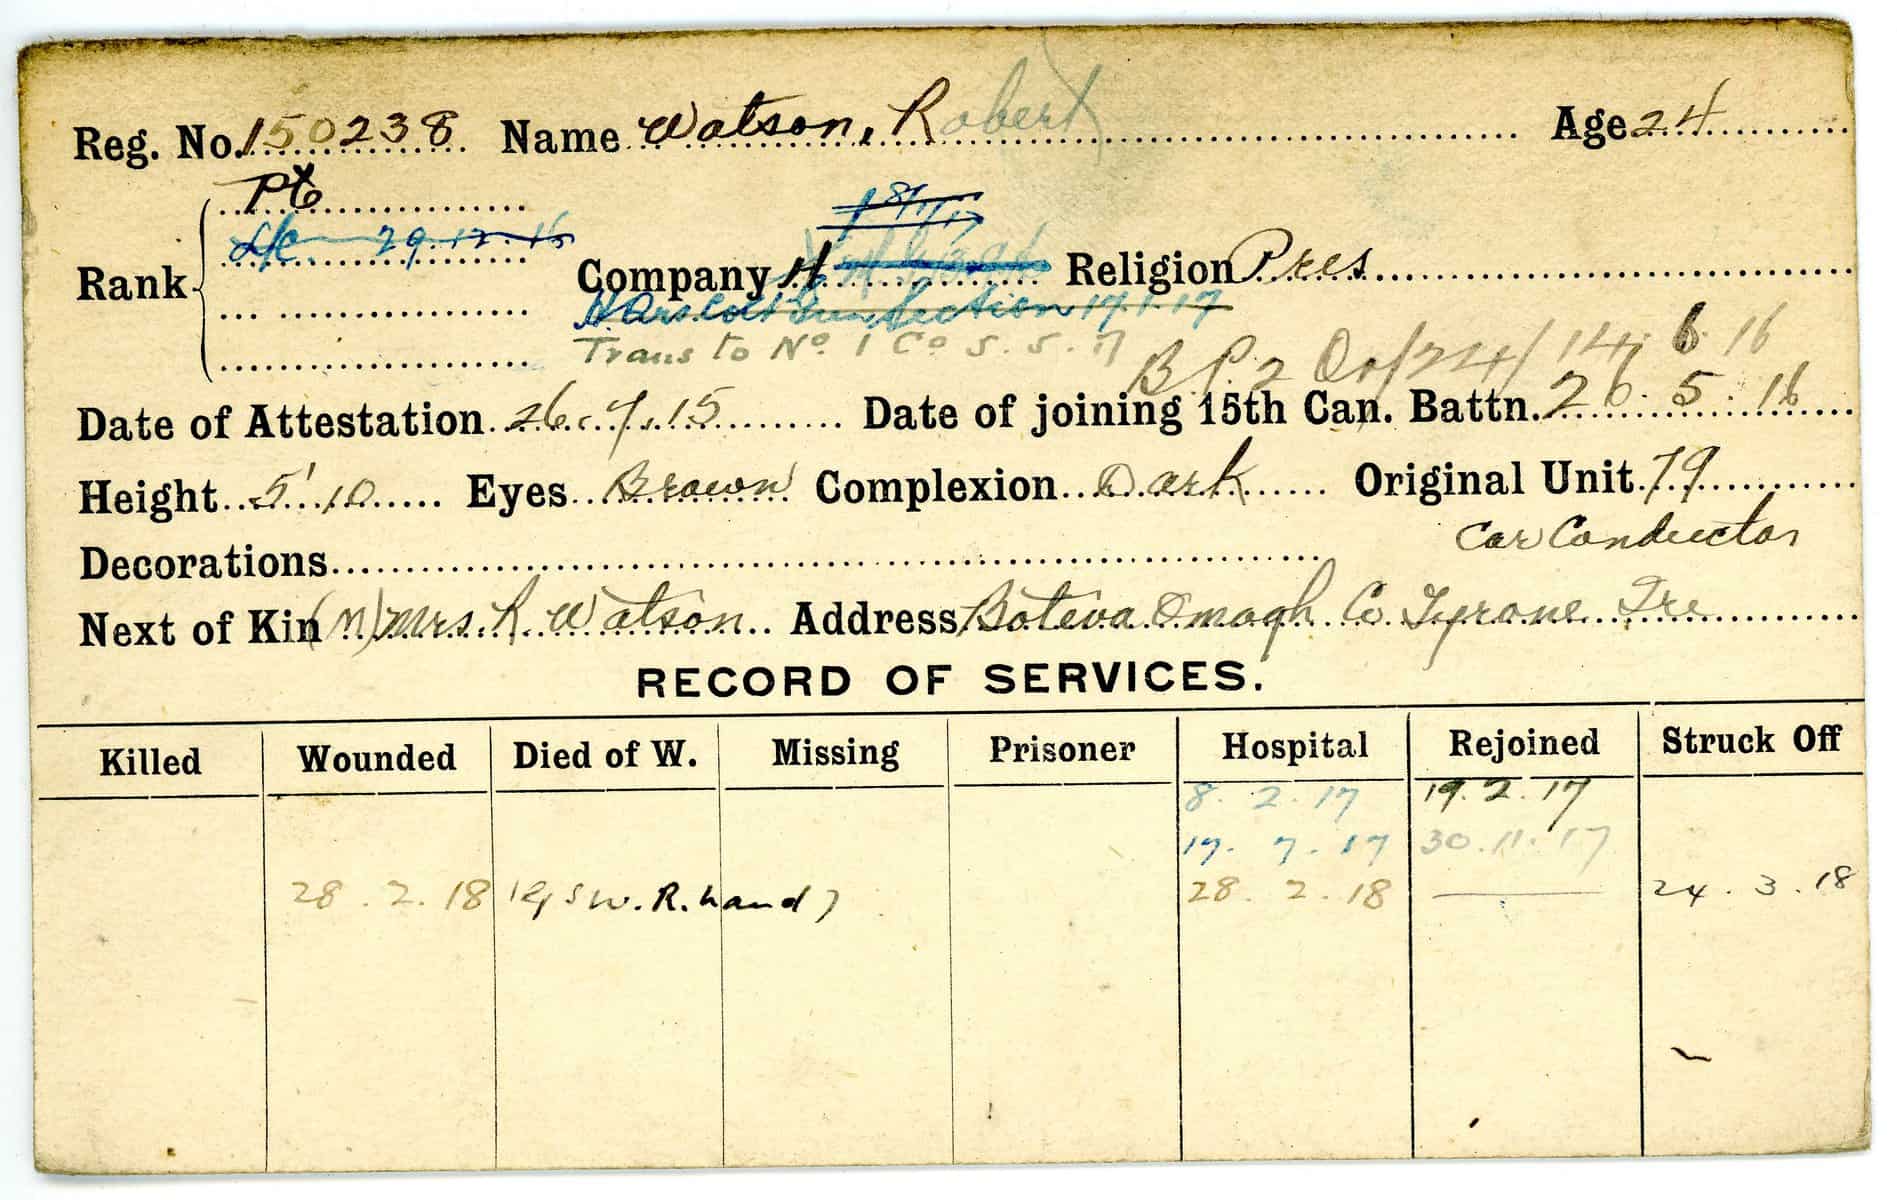 Reg. No. 150238 Name Watson, Robert Age 24
Pte
L/C 29.12.16
Rank Company H Religion Pres
Section 17.1.17
Trans to No 1 Co 5.5.17
B P2 Or/224/14.6.16
Date of Attestation 26.7.15 Date of joining 15th Can. Battn. 26.5.16
Height 5'10 Eyes Brown Complexion Dark Original Unit 79
Car Conductor
Decorations
Next of Kin (M) Mrs. R. Watson Address Boteva Omagh Co Tyrone Ire
RECORD OF SERVICES.
Killed Wounded Died of W. Missing Prisoner Hospital Rejoined Struck Off
8.2.17 19.2.17
17.7.17 30.11.17
28.2.18 (GSW. R. hand) 28.2.18 — 24.3.18